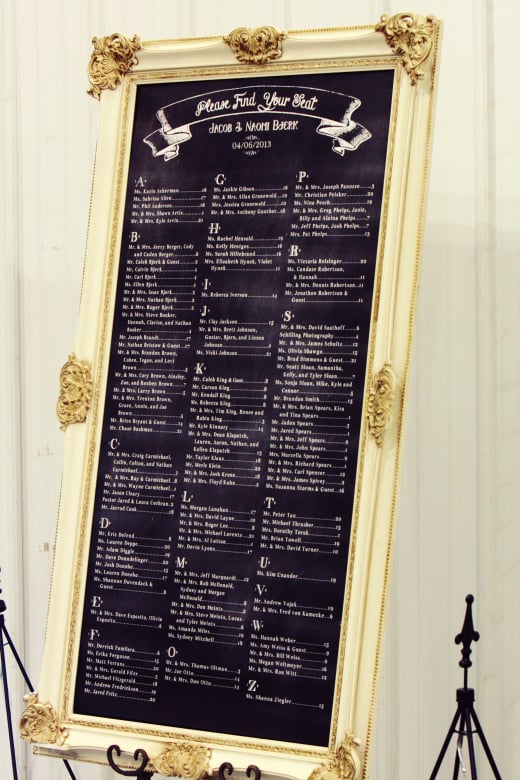 Please Find Your Seat
JACOB & NAOMI BJERK
04/06/2013
A
Ms. Karie Ackerman
Ms. Sabrina Allen
Mr. Phil Anderson
Mr. & Mrs. Shawn Artis
Mr. & Ms. Kyle Arvia
B
Mr. & Mrs. Jerry Berger, Cody
and Caden Berger
Mr. Caleb Bjerk & Guest
Mr. Calvin Bjerk
Mr. Carl Bjerk
Ms. Ellen Bjerk
Mr. & Mrs. Isaac Bjerk
Mr. & Mrs. Nathan Bjerk
Mr. & Mrs. Roger Bjerk
Mr. & Mrs. Steve Booker,
Hannah, Clarise, and Nathan
Booker
Mr. Joseph Brandt
Mr. Nathan Bristow & Guest
Mr. & Mrs. Brandon Brown,
Cohen, Tegan, and Levi
Brown
Mr. & Mrs. Cory Brown, Ainsley,
Zoe, and Reuben Brown
Mr. & Mrs. Larry Brown
Mr. & Mrs. Trenton Brown,
Grace, Annie, and Joe
Brown
Mr. Brice Bryant & Guest
Mr. Chase Bushman
C
Mr. & Mrs. Craig Carmichael,
Collin, Colton, and Nathan
Carmichael
Mr. & Mrs. Ray Carmichael
Mr. & Mrs. Wayne Carmichael
Mr. Jason Cleary
Pastor Jared & Laura Cochran
Mr. Jarrod Cook
D
Mr. Eric Defend
Ms. Lauren Deppe
Mr. Adam Diggle
Mr. Dave Donndelinger
Mr. Josh Donoho
Ms. Lauren Donoho
Ms. Shannon Duvendack &
Guest
E
Mr. & Mrs. Dave Esposito, Olivia
Esposito
F
Mr. Derrick Familara
Ms. Erika Ferguson
Mr. Matt Ferraro
Mr. & Mrs. Gerald Fifer
Mr. Michael Fitzgerald
Mr. Andrew Fredrickson
Mr. Jared Fritz
G
Ms. Jackie Gibson
Mr. & Mrs. Allan Grunewald
Mrs. Jessica Grunewald
Mr. & Mrs. Anthony Gunther
H
Ms. Rachel Hensold
Ms. Kelly Hentges
Ms. Sarah Hillebrand
Mrs. Elizabeth Hynek, Violet
Hynek
I
Ms. Rebecca Iverson
J
Mr. Clay Jackson
Mr. & Mrs. Brett Johnson,
Gustav, Bjorn, and Linnea
Johnson
Ms. Vicki Johnson
K
Mr. Caleb King & Guest
Mr. Carson King
Mr. Kendall King
Ms. Rebecca King
Mr. & Mrs. Tim King, Renee and
Robin King
Mr. Kyle Kinnary
Mr. & Mrs. Dean Klapatch,
Lauren, Aaron, Nathan, and
Kellen Klapatch
Mr. Taylor Klaus
Mr. Merle Klein
Mr. & Mrs. Josh Krone
Mr. & Mrs. Floyd Kuhn
L
Ms. Morgan Lanahan
Mr. & Mrs. David Layne
Mr. & Mrs. Roger Lee
Mr. & Mrs. Michael Lorentz
Mr. & Mrs. Al Lotton
Mr. Devin Lyons
M
Mr. & Mrs. Jeff Marquardt
Mr. & Mrs. Rob McDonald,
Sydney and Morgan
McDonald
Mr. & Mrs. Don Meints
Mr. & Mrs. Steve Meints, Lucas
and Tyler Meints
Ms. Amanda Miles
Ms. Sydney Mitchell
O
Mr. & Mrs. Thomas Oltman
Mr. Joe Otto
Mr. & Mrs. Don Otto
P
Mr. & Mrs. Joseph Panozzo
Mr. Christian Peisker
Ms. Nina Pesch
Mr. & Mrs. Greg Phelps, Janie,
Billy and Alaina Phelps
Mr. Jeff Phelps, Josh Phelps
Mrs. Pat Phelps
R
Ms. Victoria Reisinger
Ms. Candace Robertson,
& Hannah
Mr. & Mrs. Dennis Robertson
Mr. Jonathan Robertson &
Guest
S
Mr. & Mrs. David Saathoff
Schilling Photography
Mr. & Mrs. James Schultz
Ms. Olivia Shawgo
Mr. Brad Simmons & Guest
Mr. Scott Sloan, Samantha,
Kelly, and Tyler Sloan
Ms. Sonja Sloan, Mike, Kyle and
Connor
Mr. Brandon Smith
Mr. & Mrs. Brian Spears, Kira
and Tina Spears
Mr. Jadon Spears
Mr. Jared Spears
Mr. & Mrs. Jeff Spears
Mr. & Mrs. John Spears
Mrs. Marcella Spears
Mr. & Mrs. Richard Spears
Mr. & Mrs. Carl Spencer
Mr. & Mrs. James Spivey
Ms. Suzanna Storms & Guest
T
Mr. Peter Tan
Mr. Michael Thrasher
Mrs. Dorothy Turok
Mr. Brian Towell
Mr. & Mrs. David Turner
U
Ms. Kim Unander
V
Mr. Andrew Vajak
Mr. & Mrs. Fred von Kamecke
W
Ms. Hannah Weber
Ms. Amy Weiss & Guest
Mr. & Mrs. Bill Weiss
Ms. Megan Wettmeyer
Mr. & Mrs. Ron Witt
Z
Ms. Shanna Ziegler